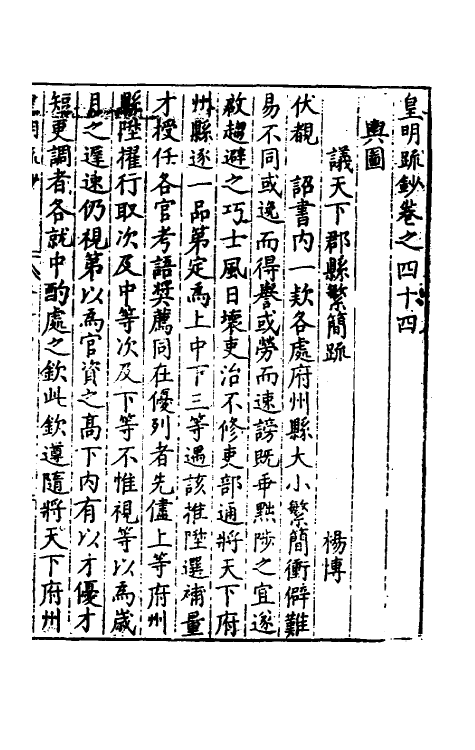 皇明疏鈔卷之四十四
輿圖
議天下郡縣繁簡疏 楊博
伏覩 詔書内一款各處府州縣大小繁簡衝僻難
易不同或逸而得譽或勞而速謗既乖黜陟之宜遂
啟趨避之巧士風日壞吏治不修吏部通將天下府
州縣逐一品第定爲上中下三等遇該推陞選補量
才授任各官考語奬薦同在優列者先儘上等府州
縣陞擢行取次及中等次及下等不惟視等以爲歲
月之遲速仍視第以爲官資之高下内有以才優才
短更調者各就中酌處之欽此欽遵隨將天下府州